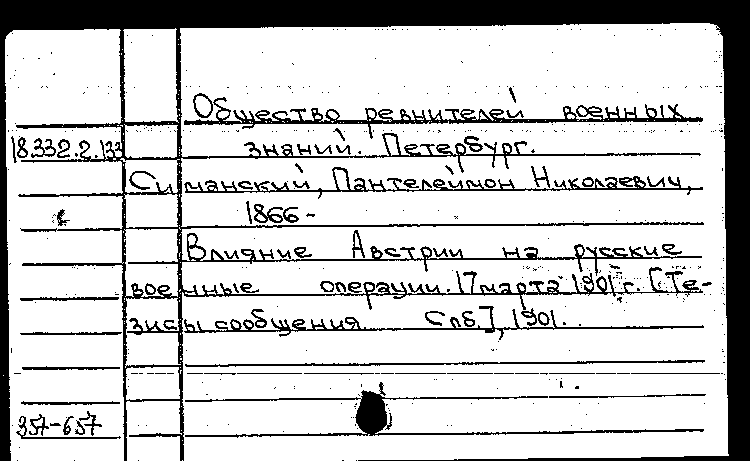 Общество ревнителей военных
18.332.2.133 знаний. Петербург.
Симанский, Пантелеймон Николаевич,
1866-
Влияние Австрии на русские
военные операции. 17 марта 1901 г. [Те-
зисы сообщения Спб.], 1901.
357-657